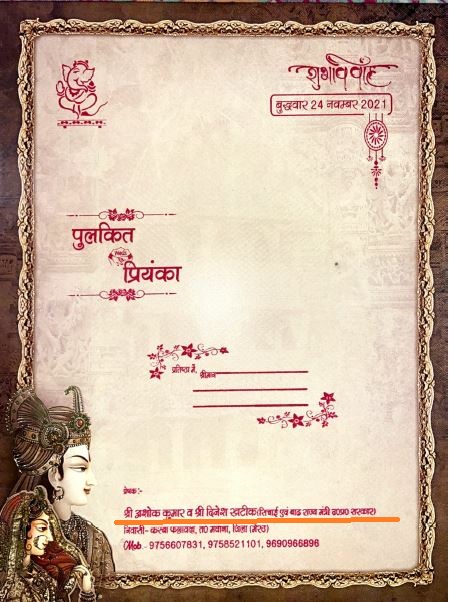 शुभविवाह
बुधवार 24 नवम्बर 2021
पुलकित
प्रियंका
प्रतिष्ठा में, श्रीमान
प्रेषक :-
श्री अशोक कुमार व श्री दिनेश खटीक (सिंचाई एवं बाढ़ राज्य मंत्री उ०प्र० सरकार)
निवासी- कस्बा फलावदा, त० मवाना, जिला (मेरठ)
Mob.- 9756607831, 9758521101, 9690966896